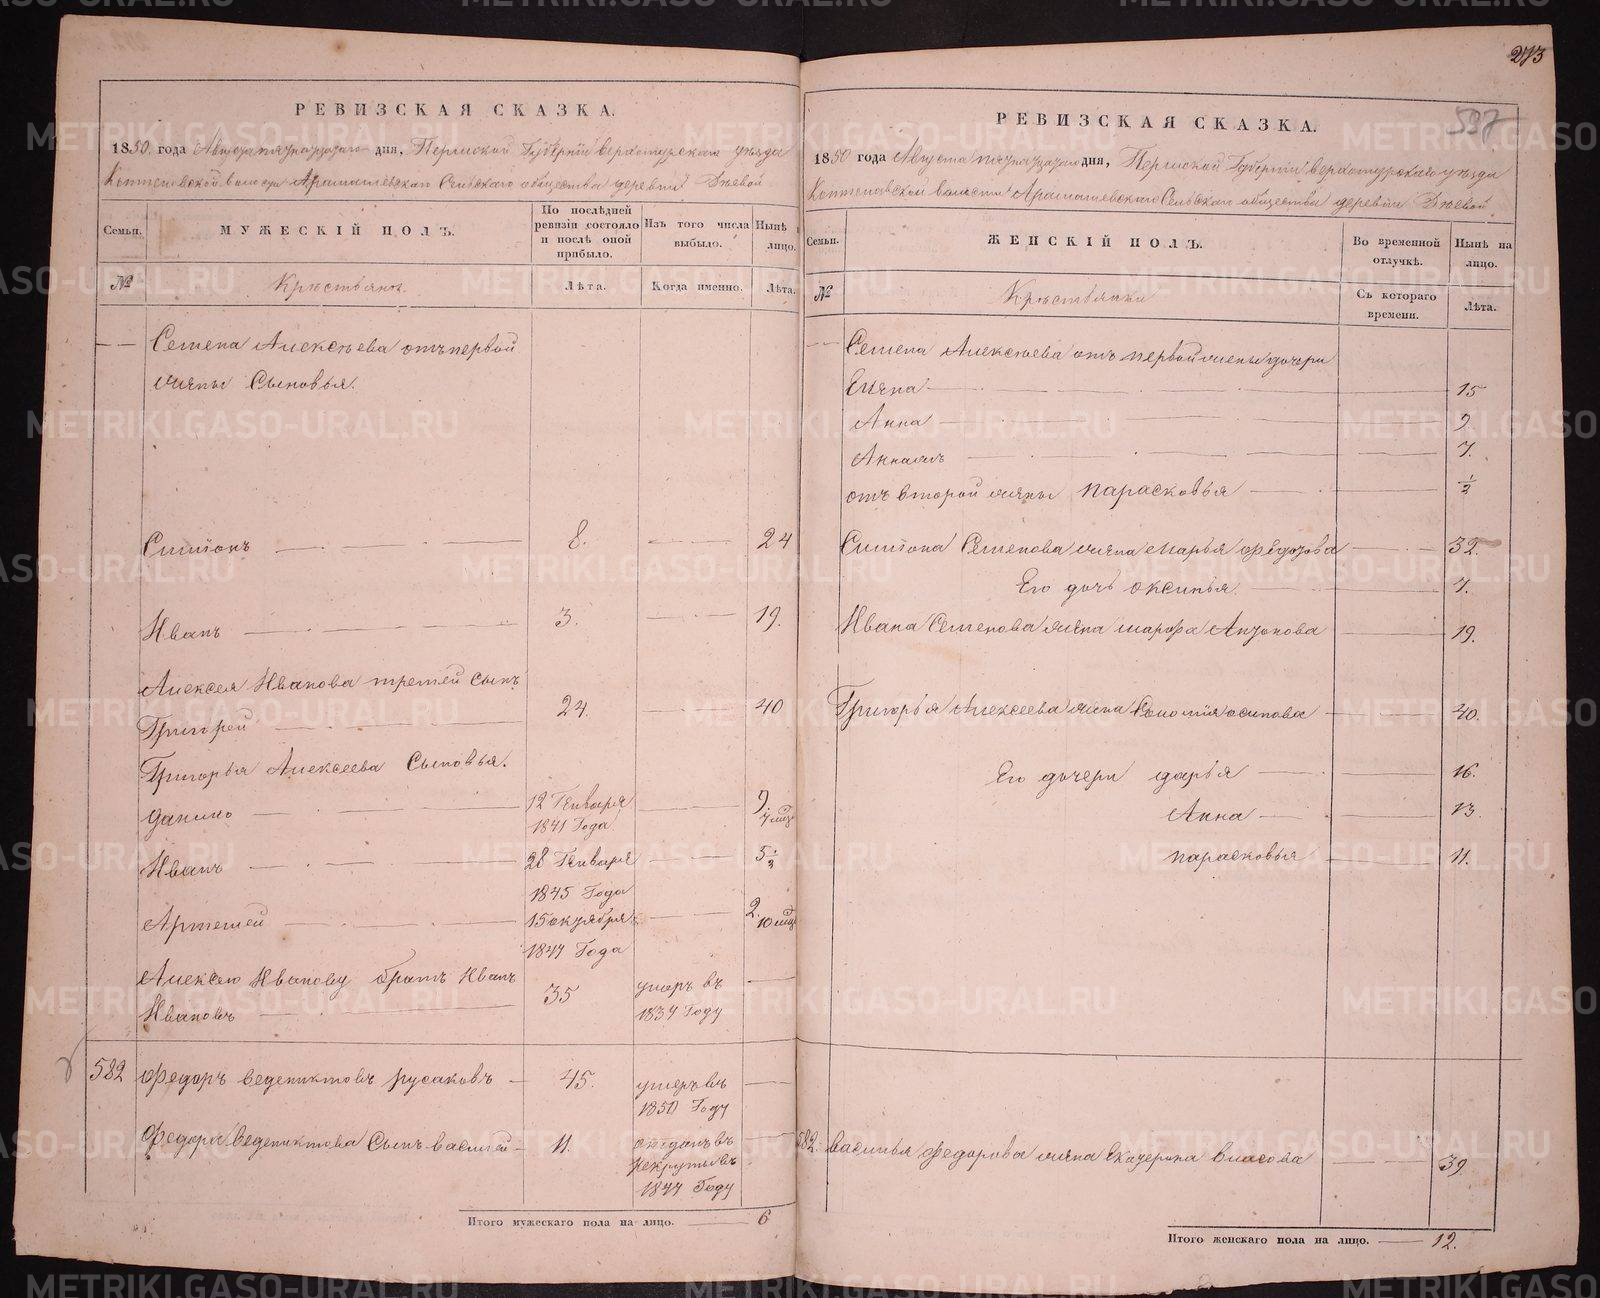 273
597
РЕВИЗСКАЯ СКАЗКА.
1850. года Августа пятнадцатаго дня, Пермской Губернiи верхотурскаго уѣзда
Коптеловской волости Арамашевскаго Сельскаго общества деревни Бѣевой
Семьи.
МУЖЕСКIЙ ПОЛЪ.
По послѣдней ревизiи состояло и послѣ оной прибыло.
Изъ того числа выбыло.
Нынѣ на лицо.
№
Крестьянъ.
Лѣта.
Когда именно.
Лѣта.
Семена Алексѣева отъ первой
жены Сыновья.
Симiонъ 8. 24
Иванъ 3. 19.
Алексея Иванова третей сынъ
Григорей 24. 40
Григорья Алексеева Сыновья.
Данило 12 Генваря 1841 Года 9. 7 мцъ
Иванъ 28 Генваря 1845 Года 5 1/2
Артемей 15 октября 1847 Года 2. 10 мцъ
Алексею Иванову братъ Иванъ
Ивановъ 35 умеръ въ 1837 Году
582 Федоръ веденихтовъ русаковъ 45. умеръ въ 1850 Году
Федора Веденихтова Сынъ василей 11. отданъ въ рекруты въ 1847 Году
Итого мужескаго пола на лицо. 6
РЕВИЗСКАЯ СКАЗКА.
1850 года Августа пятнадцатаго дня, Пермской Губернiи верхотурскаго уѣзда
Коптеловской волости Арамашевскаго Сельскаго общества деревни Бѣевой
Семьи.
ЖЕНСКIЙ ПОЛЪ.
Во временной отлучкѣ.
Нынѣ на лицо.
№
Крестьянки
Съ котораго времени.
Лѣта.
Семена Алексѣева отъ первой жены дочери
Елена 15
Анна 9
Анна жъ 7.
отъ второй жены парасковья 1/2
Симiона Семенова жена марья Федотова 32.
Его дочь оксинья. 7.
Ивана Семенова жена марфа Антонова 19.
Григорья Алексеева жена Соломiя осипова 40.
Его дочери дарья 16.
Анна 13
парасковья 11.
582. василья Федорова жена Екатерина власова 39
Итого женскаго пола на лицо. 12.
METRIKI.GASO-URAL.RU